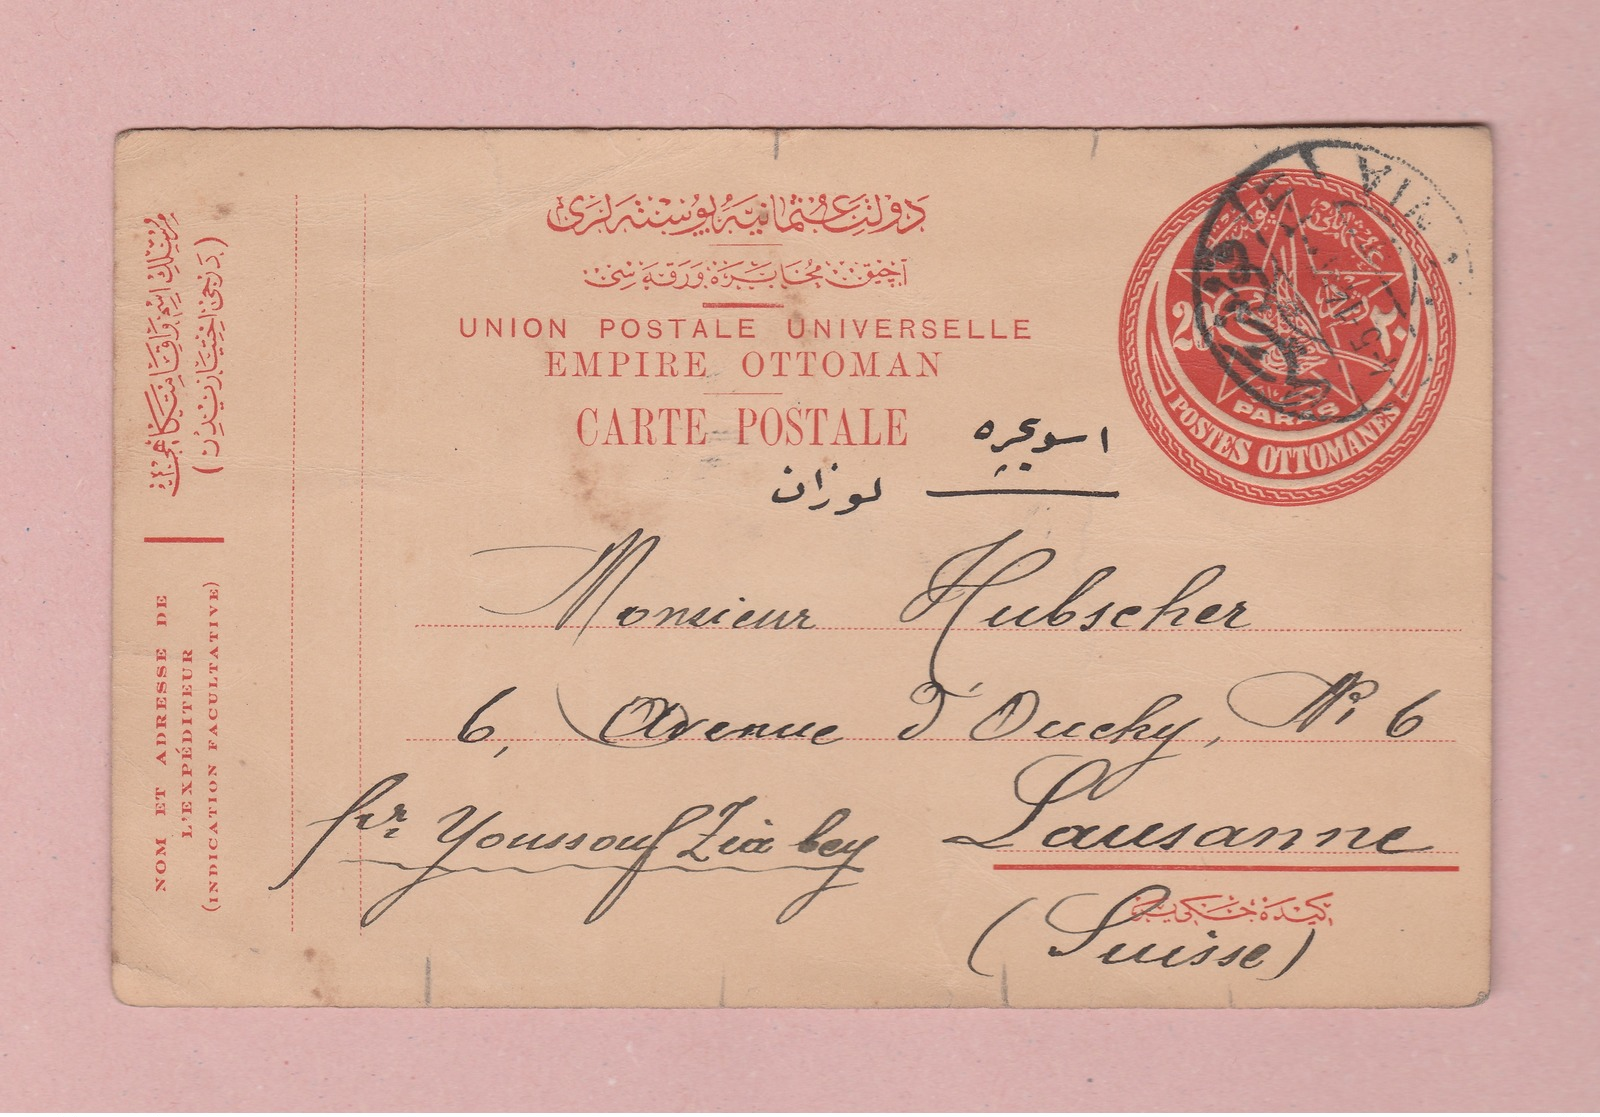 دولت عثمانيه پوسته لری
آچيق مخابره ورقه سی
UNION POSTALE UNIVERSELLE
EMPIRE OTTOMAN
CARTE POSTALE
اسویچره
لوزان
POSTES OTTOMANES
PARAS
Monsieur Hubscher
6, Avenue d'Ouchy, No 6
pr Youssouf Zia bey Lausanne
(Suisse)
NOM ET ADRESSE DE
L'EXPÉDITEUR
(INDICATION FACULTATIVE)